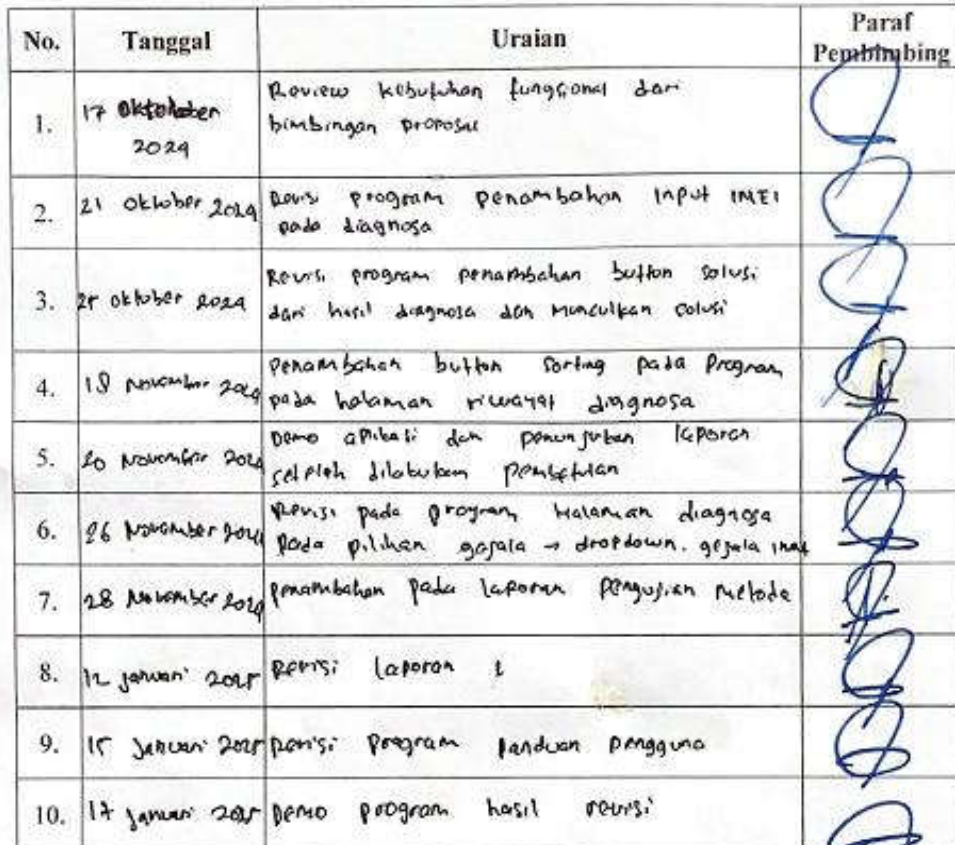 No. Tanggal Uraian Paraf Pembimbing
1. 17 Oktober 2024 Review kebutuhan fungsional dari
bimbingan proposal
2. 21 Oktober 2024 Revisi program penambahan input IMEI
pada diagnosa
3. oktober 2024 Revisi program penambahan button solusi
dari hasil diagnosa dan munculkan solusi
4. 18 November 2024 penambahan button sorting pada program
pada halaman riwayat diagnosa
5. 20 November 2024 Demo aplikasi dan penunjukan laporan
setelah dilakukan pembetulan
6. 26 November 2024 Revisi pada program halaman diagnosa
pada pilihan gejala → dropdown. gejala
7. 28 November 2024 penambahan pada laporan pengujian metode
8. 12 januari 2025 Revisi laporan
9. 15 Januari 2025 Revisi program panduan pengguna
10. 17 januari 2025 Demo program hasil revisi